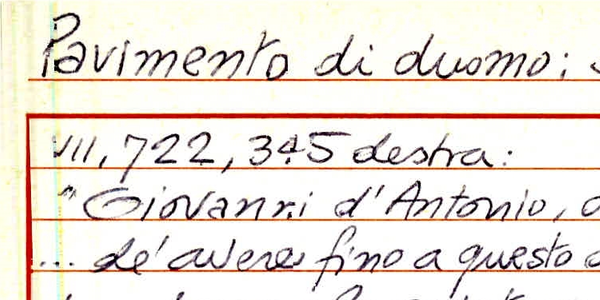 Pavimento di duomo:
VII, 722, 345 destra:
"Giovanni d'Antonio,
... de' avere fino a questo